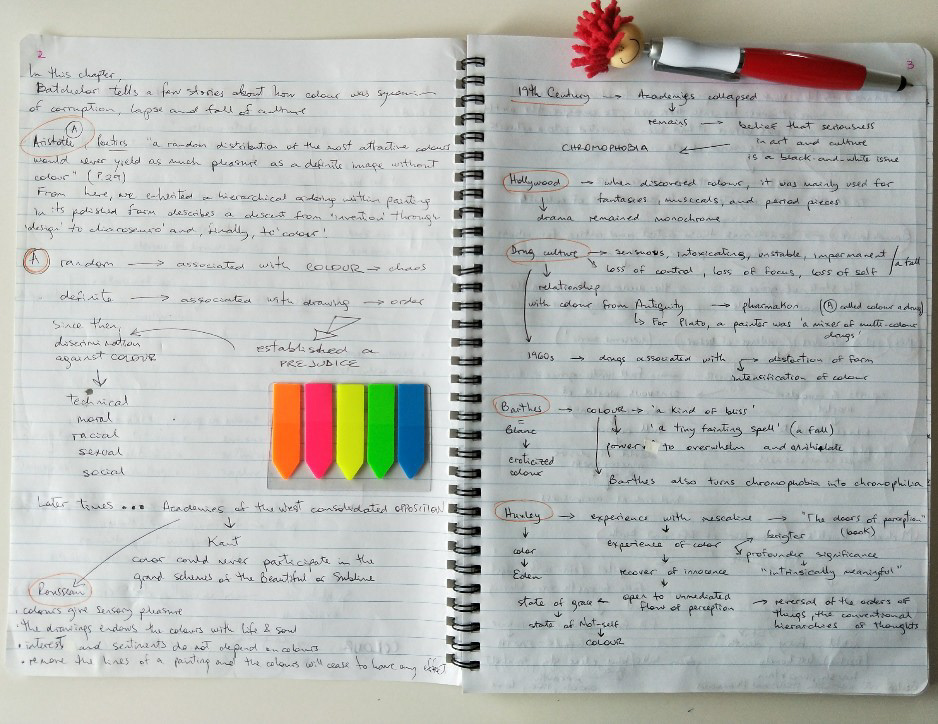 2
In this chapter,
Batchelor tells a few stories about how colour was synonim
of corruption, lapse and fall of culture
A
Aristotle Poetics "a random distribution of the most attractive colours
would never yield as much pleasure as a definite image without
colour" (P.29)
From here, we inherited a hierarchical ordering within painting
in its polished form describes a descent from 'invention' through
'design' to chiaroscuro' and, finally, to 'colour'
A random → associated with COLOUR → chaos
definite → associated with drawing → order
since then,
discrimination
against COLOUR
established a
PREJUDICE
technical
moral
racial
sexual
social
Later times ... Academies of the West consolidated OPPOSITION
Kant
color could never participate in the
grand schemes of the Beautiful or Sublime
Rousseau
• colours give sensory pleasure
• the drawings endows the colours with life & soul
• interest and sentiments do not depend on colours
• remove the lines of a painting and the colours will cease to have any effect
3
19th Century → Academies collapsed
remains → belief that seriousness
in art and culture
is a black-and-white issue
CHROMOPHOBIA
Hollywood → when discovered colour, it was mainly used for
fantasies, musicals, and period pieces
drama remained monochrome
Drug culture → sensuous, intoxicating, unstable, impermanent / a fall
loss of control, loss of focus, loss of self
relationship
with colour from Antiquity → pharmakon (A called colour a drug)
For Plato, a painter was 'a mixer of multi-colour
drugs'
1960s → drugs associated with → distortion of form
intensification of colour
Barthes → colour → 'a kind of bliss'
=
Blanc
'a tiny fainting spell' (a fall)
power to overwhelm and annihilate
eroticized
colour
Barthes also turns chromophobia into chromophilia
Huxley → experience with mescaline → "The doors of perception"
(book)
color
experience of color
brigter
profounder significance
Eden
recover of innocence
"intrinsically meaningful"
state of grace ← open to unmediated
flow of perception
→ reversal of the orders of
things, the conventional
hierarchies of thoughts
state of Not-self
COLOUR